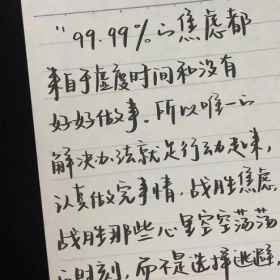 "99.99%的焦虑都
来自于虚度时间和没有
好好做事。所以唯一的
解决办法就是行动起来，
认真做完事情，战胜焦虑，
战胜那些心里空空荡荡
的时刻，而不是选择逃避